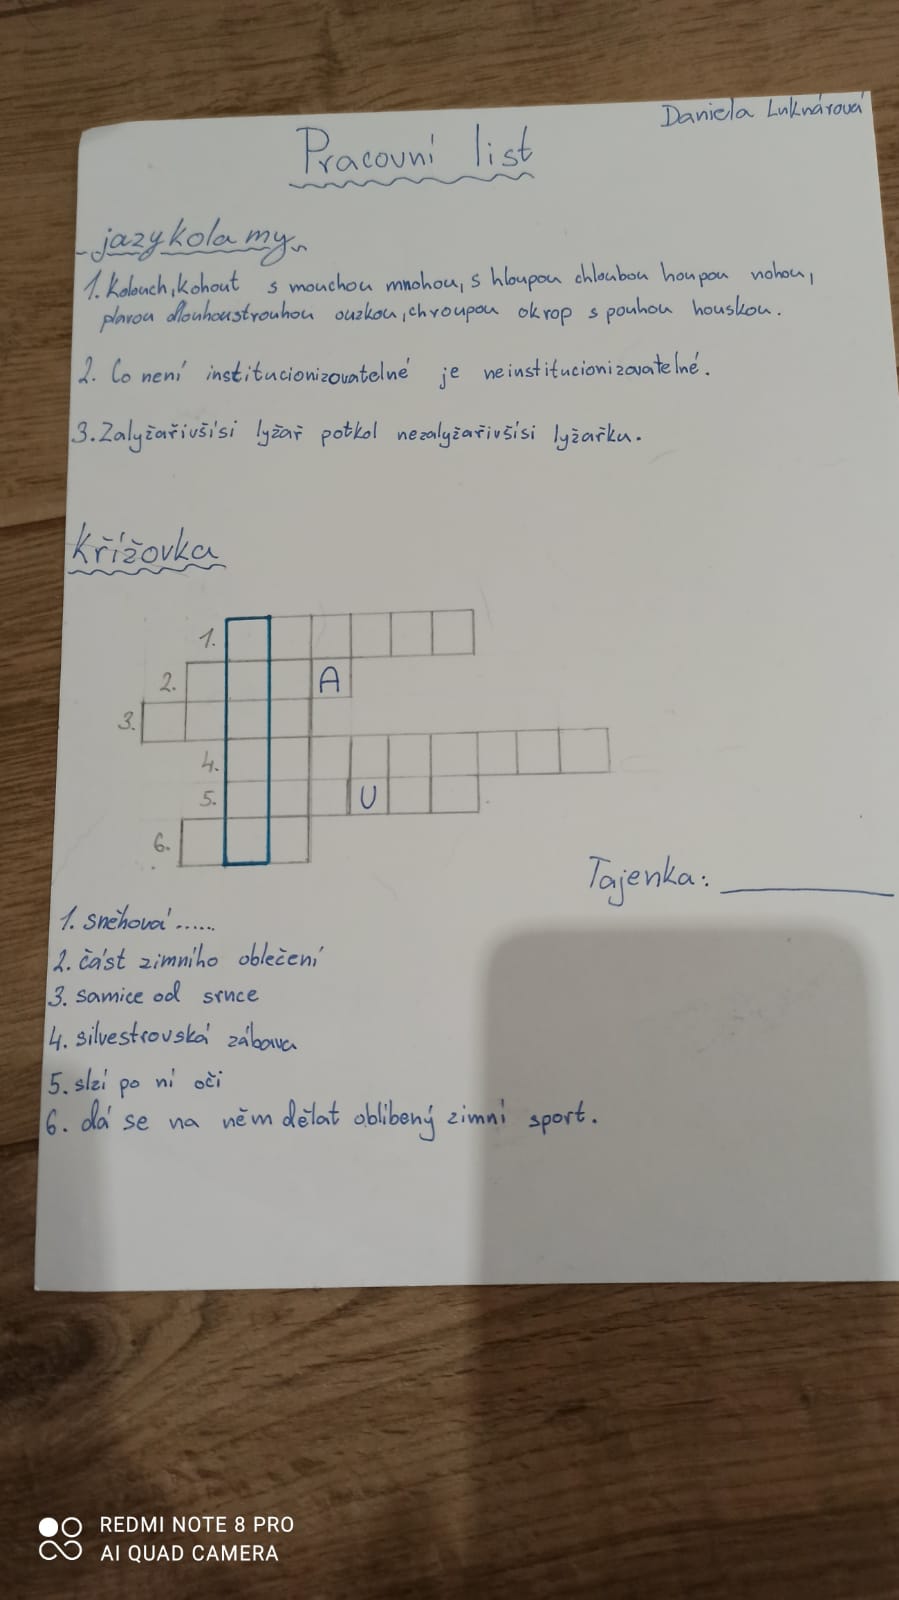 Daniela Luknárová
Pracovní list
jazykolamy
1. Kolouch, kohout s mouchou mnohou, s hloupou chloubou houpou nohou,
plavou dlouhoustrouhou ouzkou, chroupou okrop s pouhou houskou.
2. Co není institucionizovatelné je neinstitucionizovatelné.
3. Zalyžařivšísi lyžař potkol nezalyžařivšísi lyžařku.
Křížovka
1.
2. A
3.
4.
5. U
6.
Tajenka: ________
1. sněhová ......
2. část zimního oblečení
3. samice od srnce
4. silvestrovská zábava
5. slzí po ní oči
6. dá se na něm dělat oblíbený zimní sport.
REDMI NOTE 8 PRO
AI QUAD CAMERA